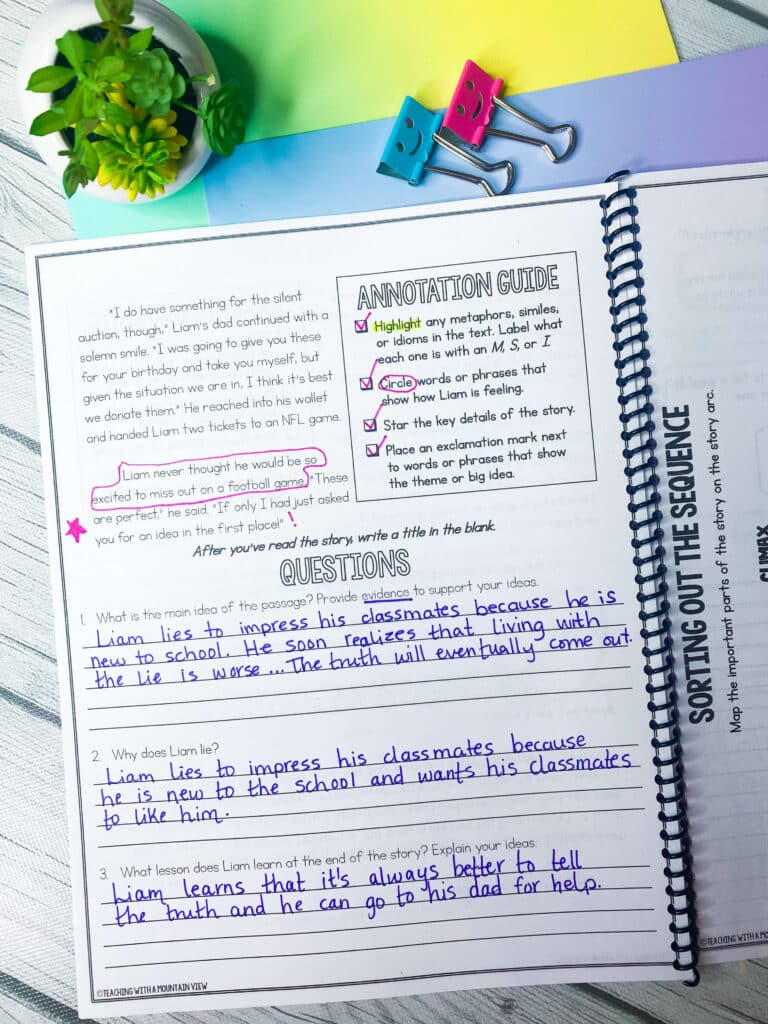 "I do have something for the silent
auction, though," Liam's dad continued with a
solemn smile. "I was going to give you these
for your birthday and take you myself, but
given the situation we are in, I think it's best
we donate them." He reached into his wallet
and handed Liam two tickets to an NFL game.
Liam never thought he would be so
excited to miss out on a football game. "These
are perfect," he said. "If only I had just asked
you for an idea in the first place!" !
ANNOTATION GUIDE
Highlight any metaphors, similes,
or idioms in the text. Label what
each one is with an M, S, or I
Circle words or phrases that
show how Liam is feeling.
Star the key details of the story.
Place an exclamation mark next
to words or phrases that show
the theme or big idea.
After you've read the story, write a title in the blank.
QUESTIONS
1. What is the main idea of the passage? Provide evidence to support your ideas.
Liam lies to impress his classmates because he is
new to school. He soon realizes that living with
the lie is worse ... The truth will eventually come out.
2. Why does Liam lie?
Liam lies to impress his classmates because
he is new to the school and wants his classmates
to like him.
3. What lesson does Liam learn at the end of the story? Explain your ideas.
Liam learns that it's always better to tell
the truth and he can go to his dad for help.
©TEACHING WITH A MOUNTAIN VIEW
SORTING OUT THE SEQUENCE
Map the important parts of the story on the story arc.
CLIMAX
©TEACHING WITH A MOUN